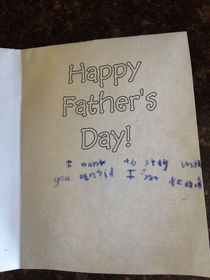 Happy
Father's
Day!
I want to stay with
you until I'm dead